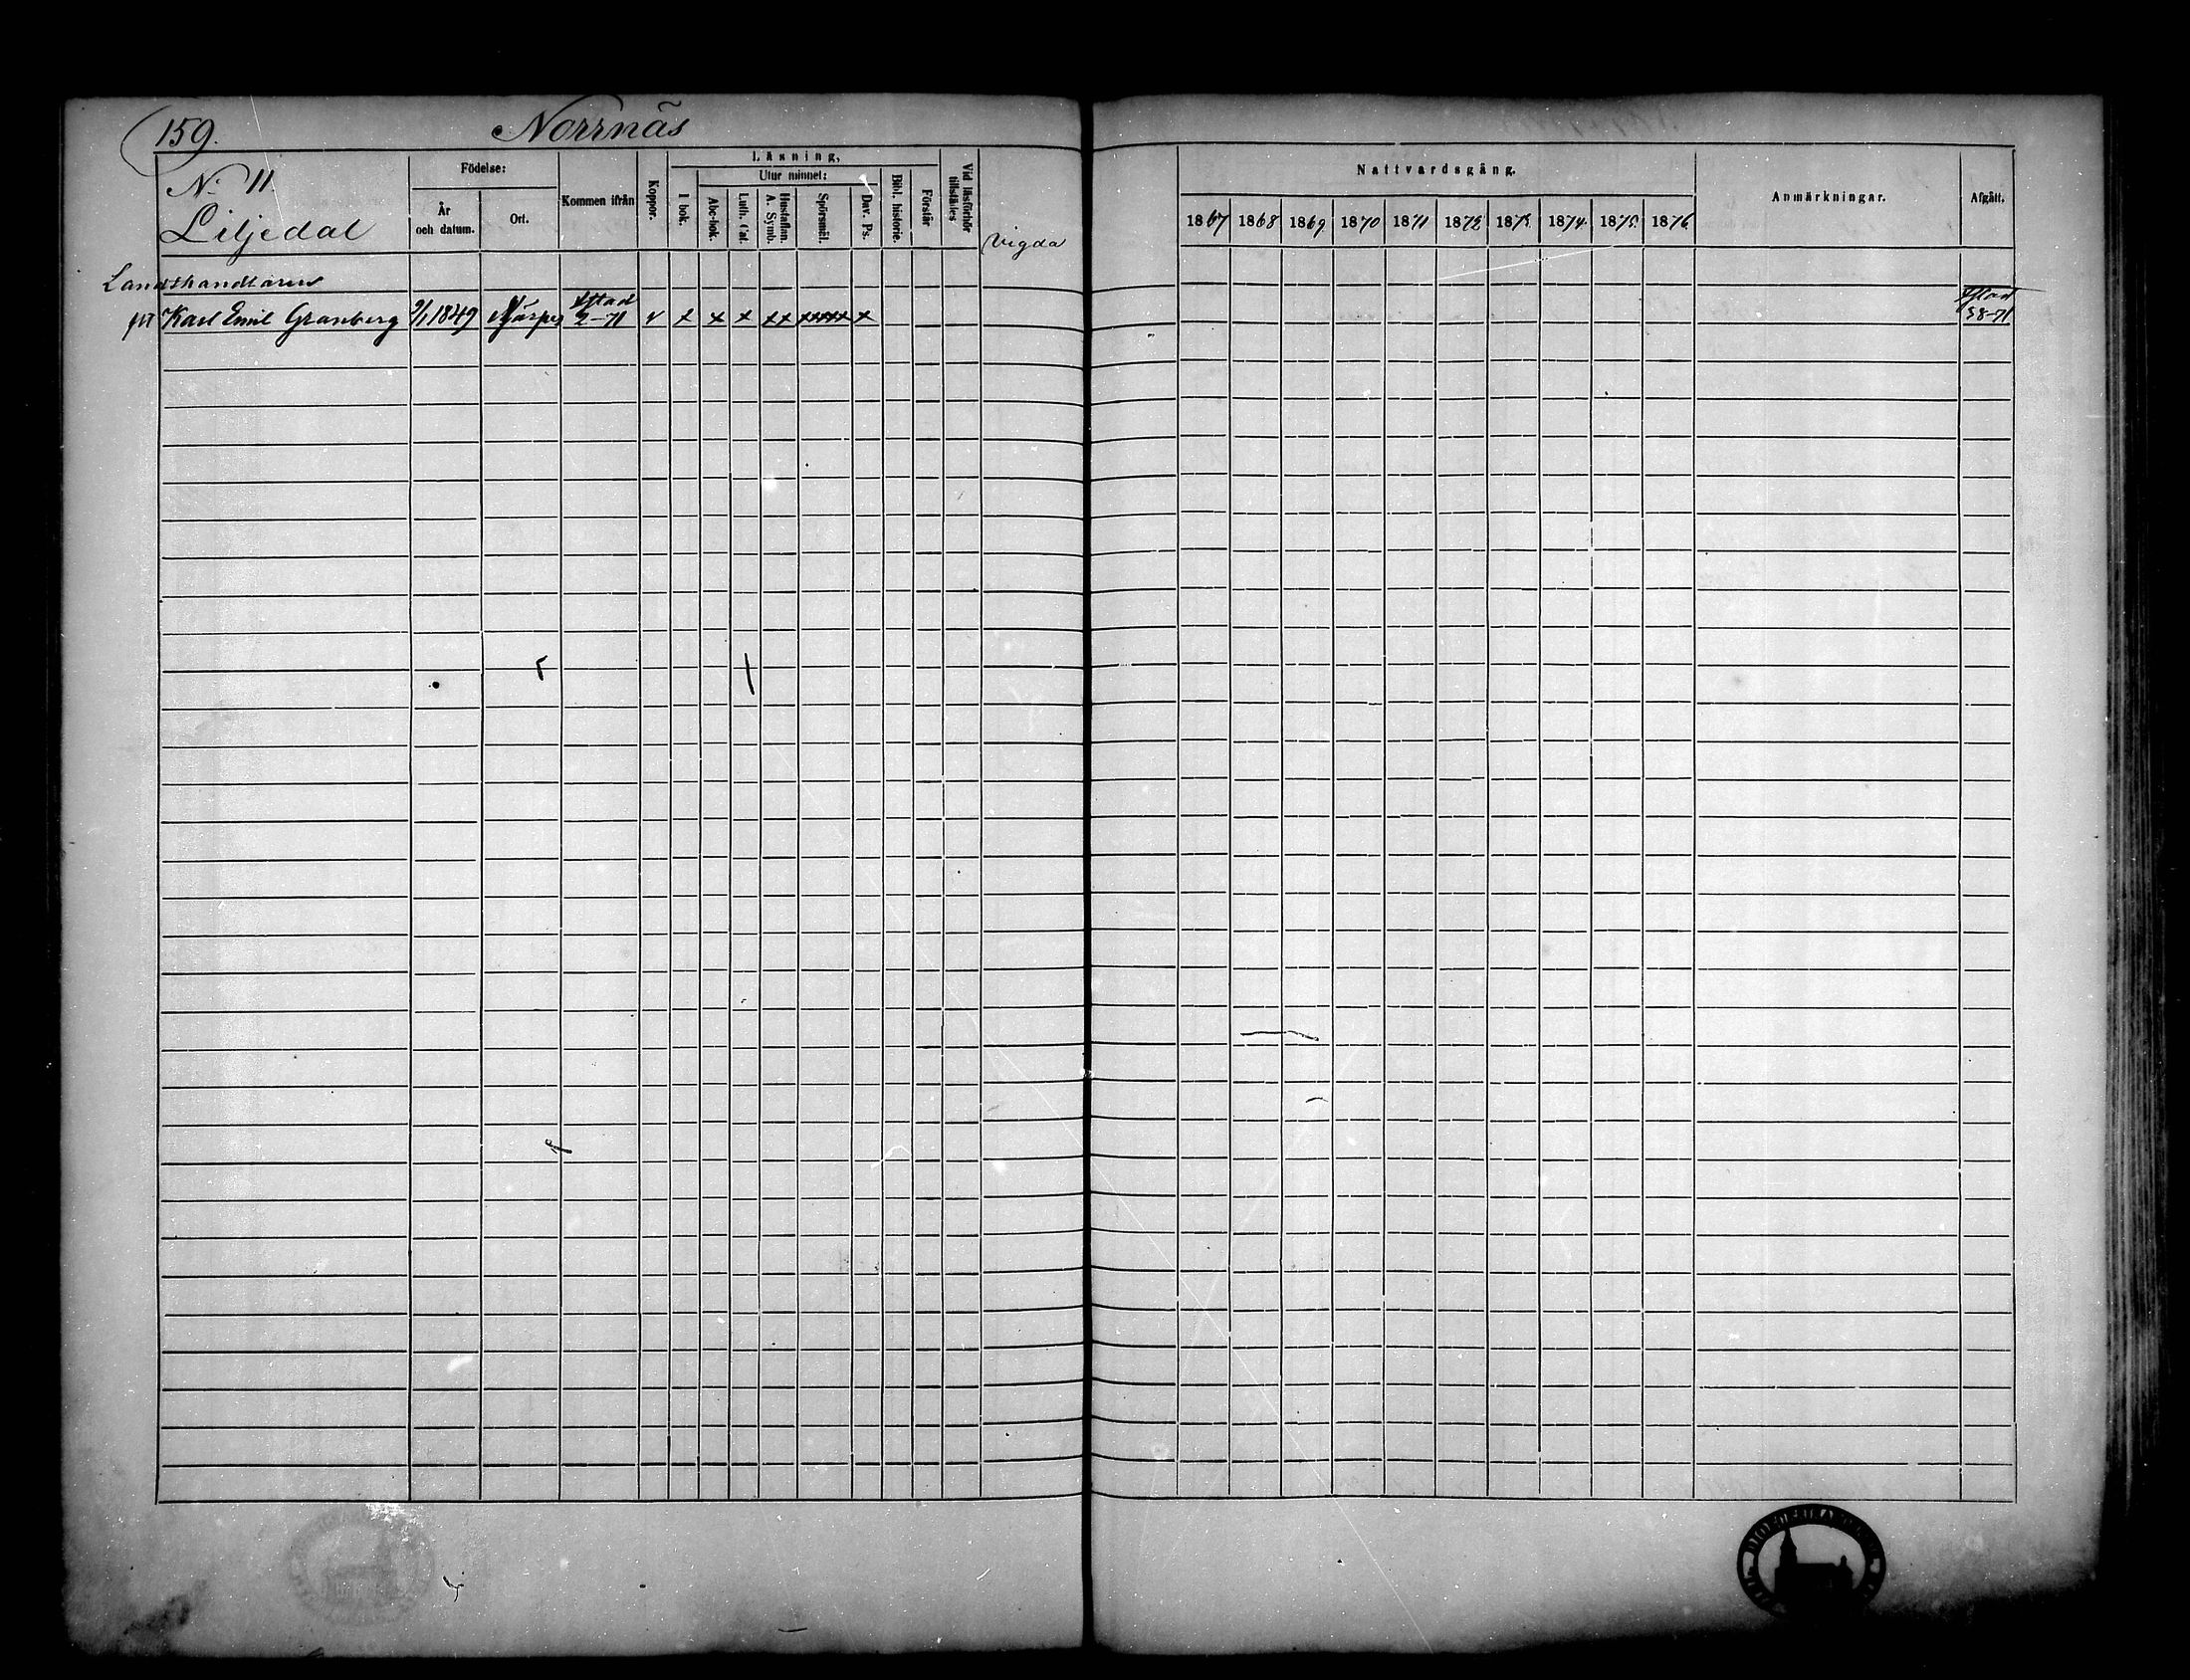 159.
Norrnäs
No 11
Liljedal
Födelse:
År
och datum.
Ort.
Kommen ifrån
Koppor.
Läsning,
I bok.
Utur minnet:
Abc-bok.
Luth. Cat.
Hustaflan.
A. Symb.
Spörsmål.
Dav. Ps.
Bibl. historie.
Förstår
Vid läsförhör
tillstädes
Vigda
Nattvardsgång.
1867 1868 1869 1870 1871 1872 1873 1874 1875 1876
Anmärkningar.
Afgått.
Landthandlaren
Karl Emil Granberg 9/1 1849 Närpes 2-71 v x x x xx xxxxx x 38-71